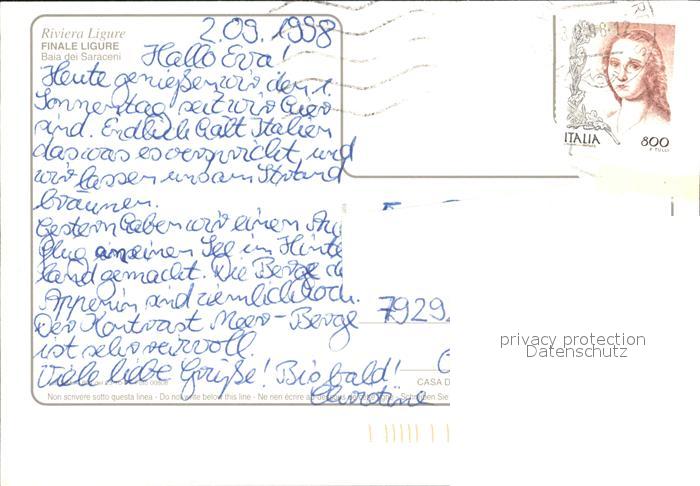 Riviera Ligure
FINALE LIGURE
Baia dei Saraceni
2.09.1998
Hallo Eva!
Heute genießen wir den 1.
Sonnentag seit wir hier
sind. Endlich hält Italien
das was es verspricht und
wir lassen uns am Strand
bräunen.
Gestern haben wir einen Au
flug an einen See im Hinte
land gemacht. Die Berge de
Appenin sind ziemlich hoch.
Der Kontrast Meer-Berge
ist sehr reizvoll.
Viele liebe Grüße! Bis bald!
Christine
ITALIA 800
7929
privacy protection
Datenschutz
CASA D
Non scrivere sotto questa linea - Do not write below this line - Ne rien écrire